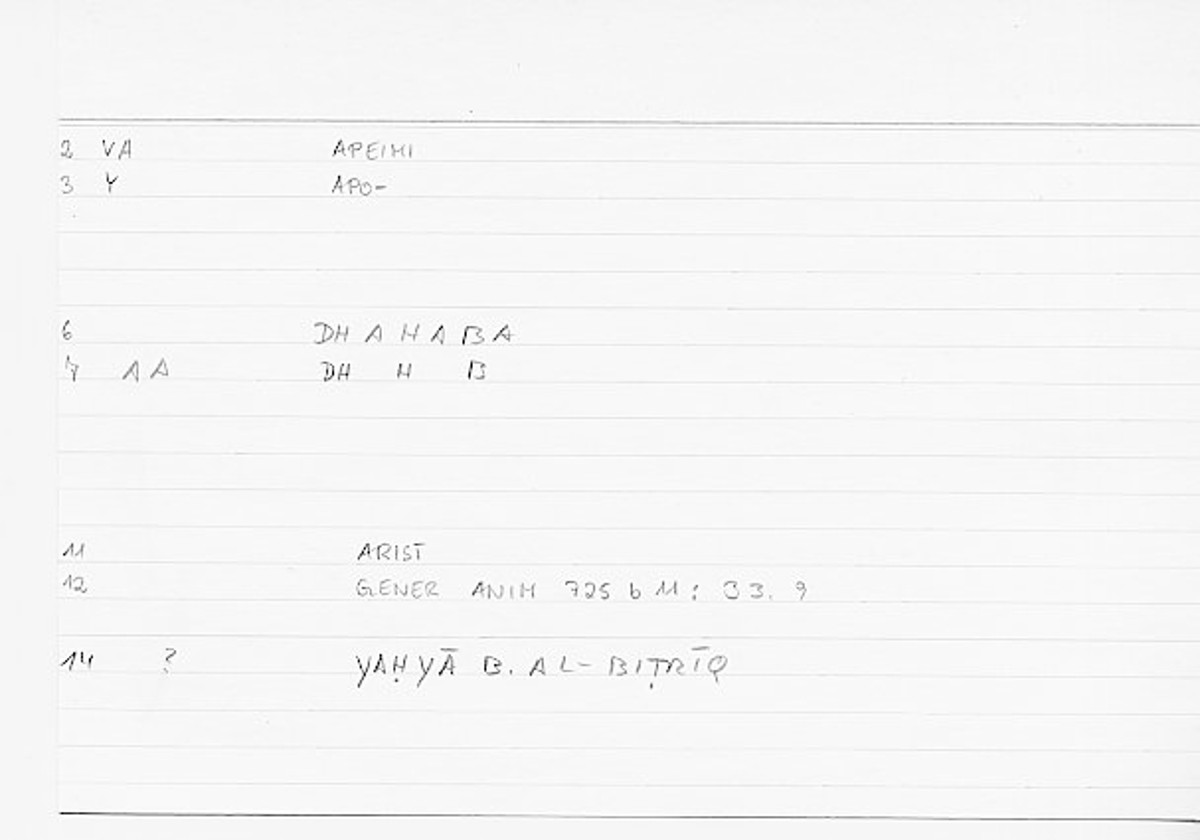 2 VA APEIMI
3 Y APO-
6 DH A H A B A
7 A A DH H B
11 ARIST
12 GENER ANIM 725 b 11 : 33. 9
14 ? YAḤYĀ B. AL-BIṬRĪQ